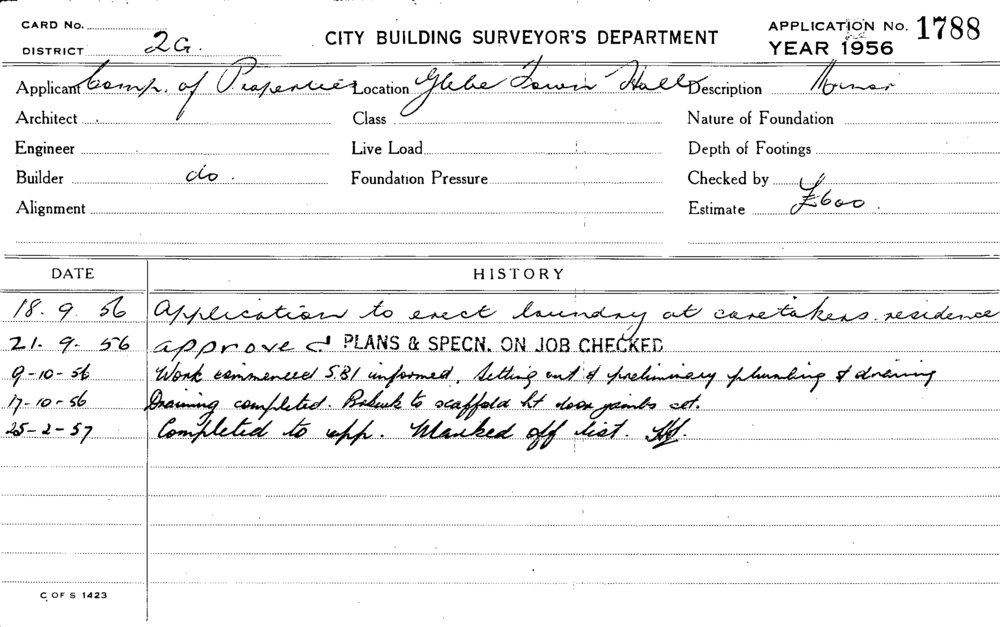 CARD No.
DISTRICT 2G.
CITY BUILDING SURVEYOR'S DEPARTMENT
APPLICATION No. 1788
YEAR 1956
Applicant Comp. of Properties Location Glebe Town Hall Description Minor
Architect Class Nature of Foundation
Engineer Live Load Depth of Footings
Builder do. Foundation Pressure Checked by
Alignment Estimate £600.
DATE HISTORY
18. 9. 56 Application to erect laundry at caretakers residence
21. 9. 56 approved PLANS & SPECN. ON JOB CHECKED
9-10-56 Work commenced S.B.I informed. Setting out & preliminary plumbing & draining
17-10-56 Draining completed. to scaffold ht door jambs set.
25-2-57 Completed to app. Marked off list.
C OF S 1423